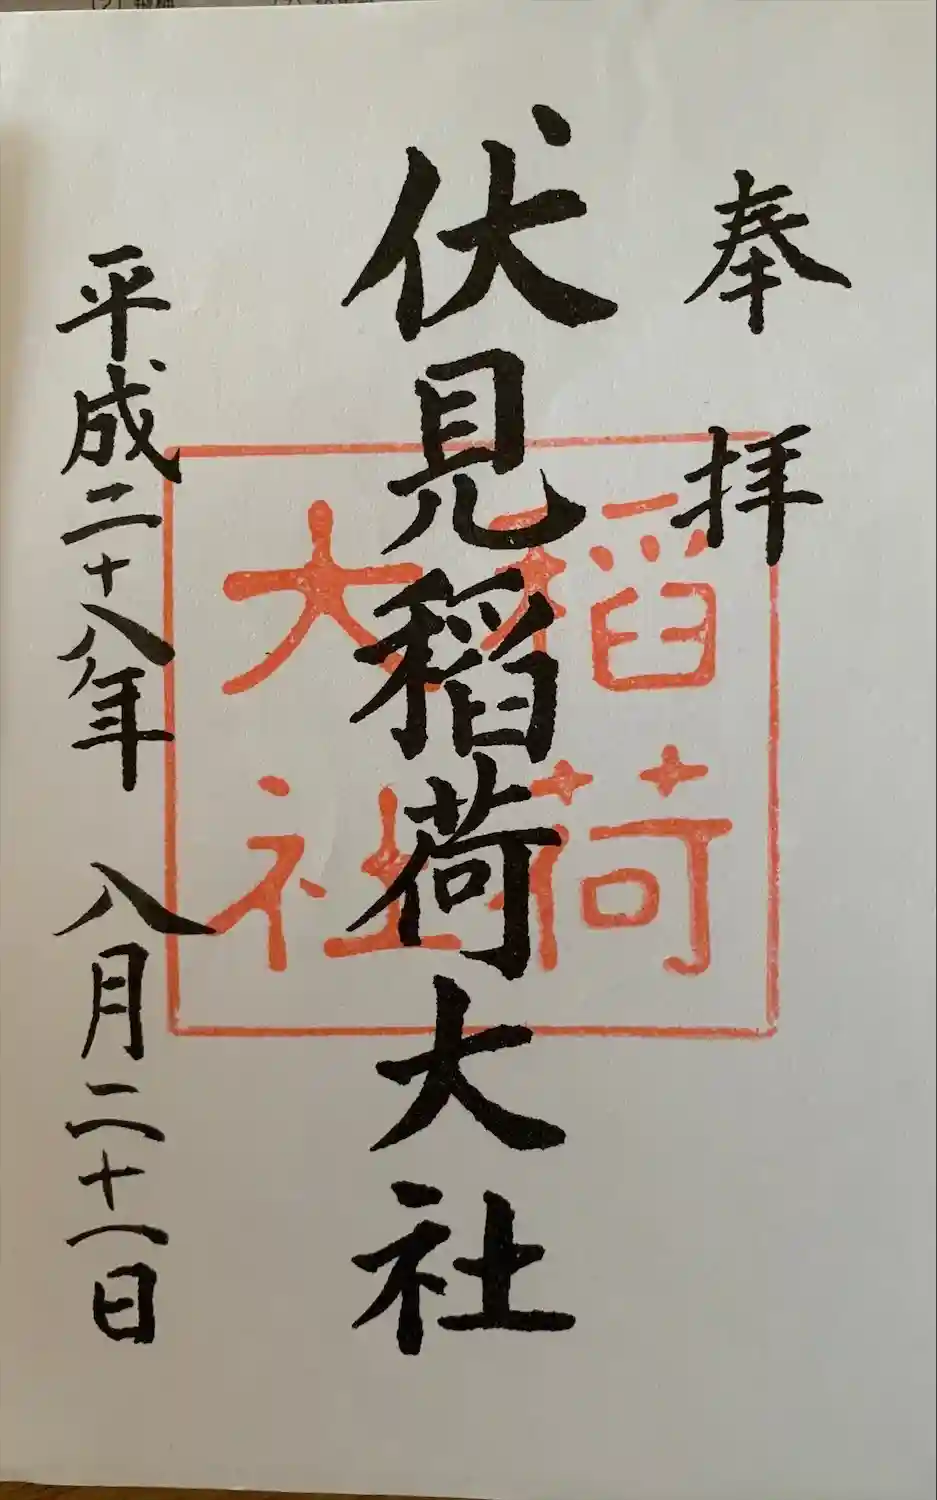 奉拝
伏見稲荷大社
稲荷
大社
平成二十八年 八月二十一日